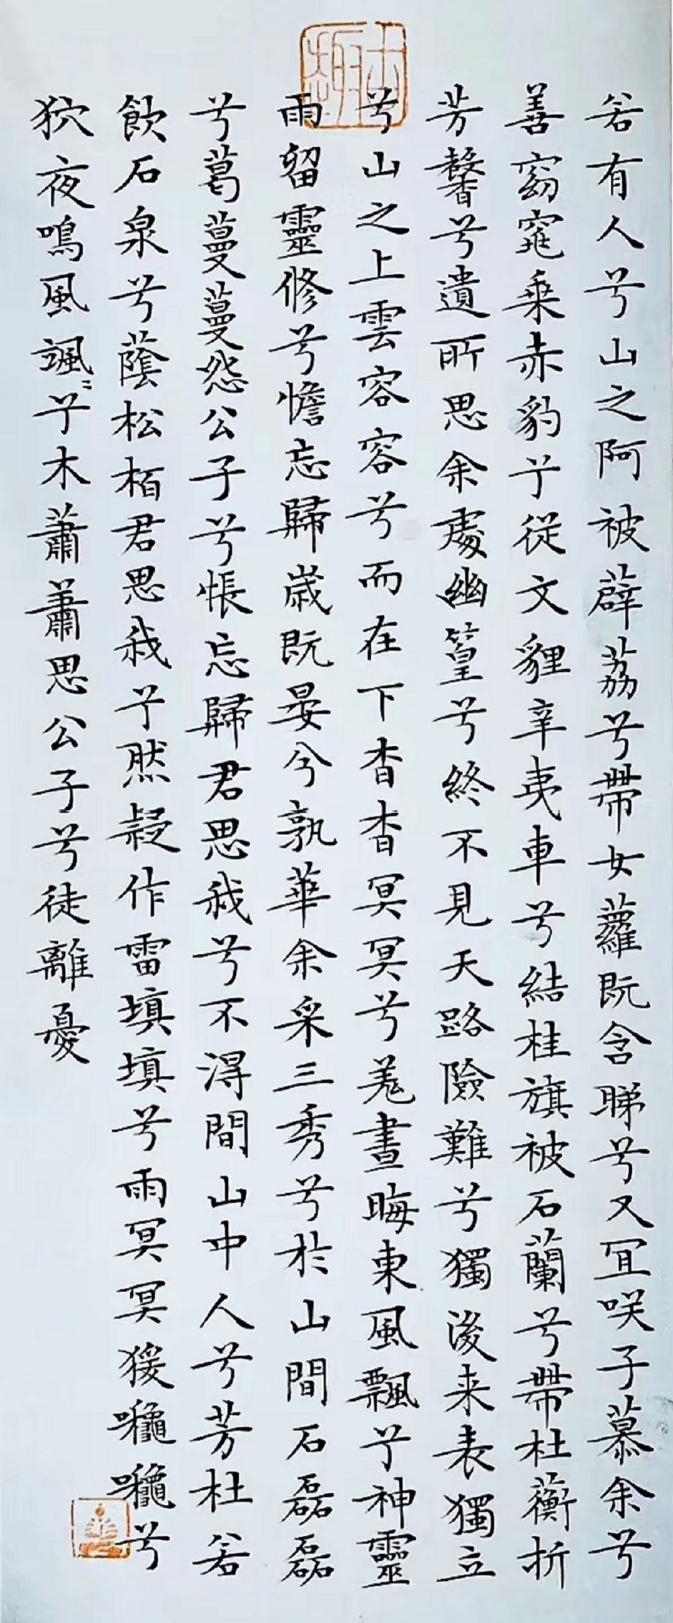 若有人兮山之阿被薜荔兮帶女蘿既含睇兮又宜咲子慕余兮
善窈窕乘赤豹兮從文貍辛夷車兮結桂旗被石蘭兮帶杜蘅折
芳馨兮遺所思余處幽篁兮終不見天路險難兮獨後来表獨立
兮山之上雲容容兮而在下杳杳冥冥兮羌晝晦東風飄兮神靈
雨留靈修兮憺忘歸歲既晏兮孰華余采三秀兮於山間石磊磊
兮葛蔓蔓怨公子兮悵忘歸君思我兮不得間山中人兮芳杜若
飲石泉兮蔭松栢君思我兮然疑作雷填填兮雨冥冥猨啾啾兮
狖夜鳴風颯〻兮木蕭蕭思公子兮徒離憂